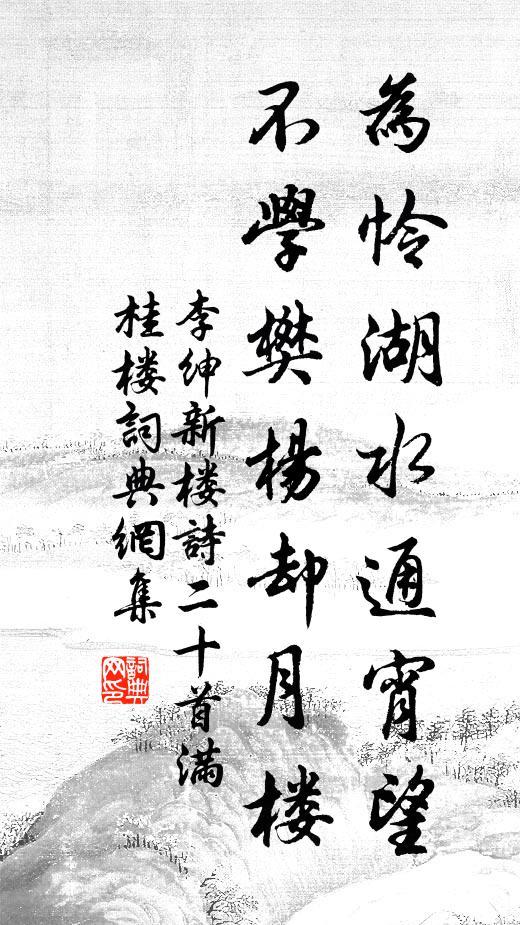 為怜湖水通宵望
不學樊楊却月楼
李紳新楼詩二十首滿
桂楼詞典網集
詞典網印